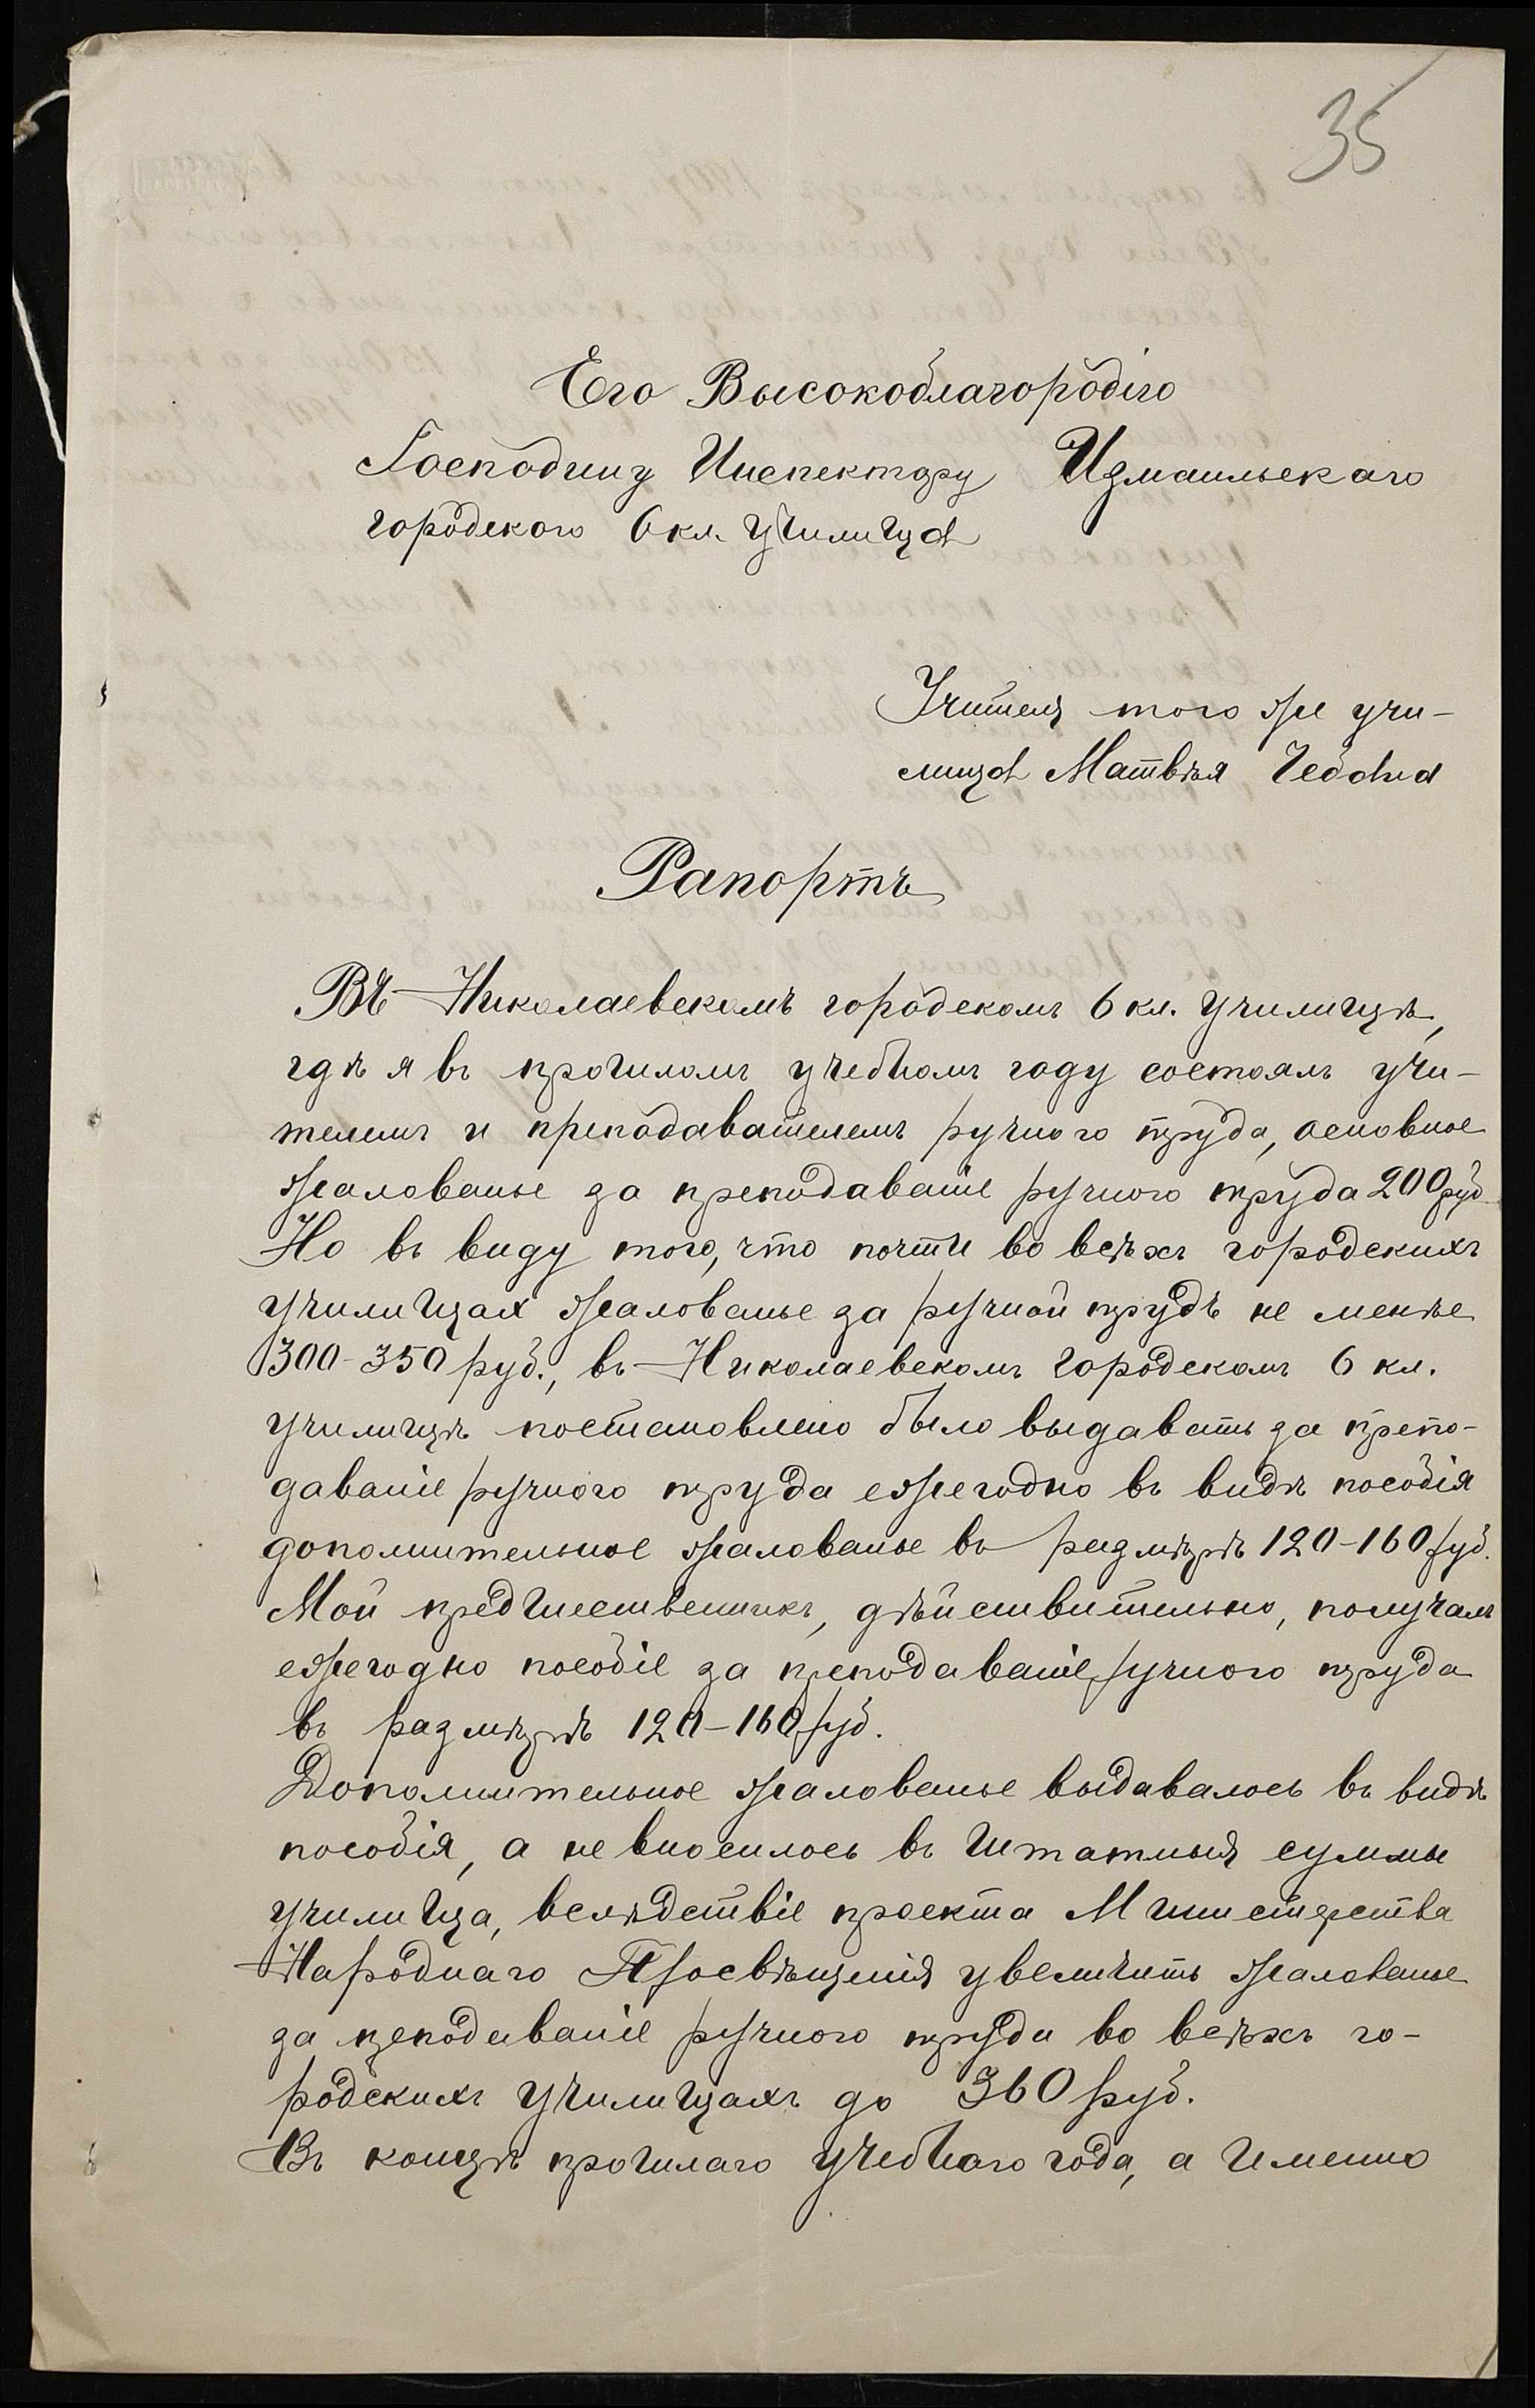 35
Его Высокоблагородію
Господину Инспектору Измаильскаго
городского 6 кл. училища
Учителя того же учи-
лища Матвѣя Чебана
Рапортъ
Въ Николаевскомъ городскомъ 6 кл. училищѣ,
гдѣ я въ прошломъ учебномъ году состоялъ учи-
телемъ и преподавателемъ ручного труда, основное
жалованье за преподаваніе ручного труда 200 руб.
Но въ виду того, что почти во всѣхъ городскихъ
училищах жалованье за ручной трудъ не менѣе
300-350 руб., въ Николаевскомъ городскомъ 6 кл.
училищѣ постановлено было выдавать за препо-
даваніе ручного труда ежегодно въ видѣ пособія
дополнительное жалованье въ размѣрѣ 120-160 руб.
Мой предшественникъ, дѣйствительно, получалъ
ежегодно пособіе за преподаваніе ручного труда
въ размѣрѣ 120-160 руб.
Дополнительное жалованье выдавалось въ видѣ
пособія, а не вносилось въ штатныя суммы
училища, вслѣдствіе проекта Министерства
Народнаго Просвѣщенія увеличить жалованье
за преподаваніе ручного труда во всѣхъ го-
родскихъ училищахъ до 360 руб.
Въ концѣ прошлаго учебнаго года, а именно